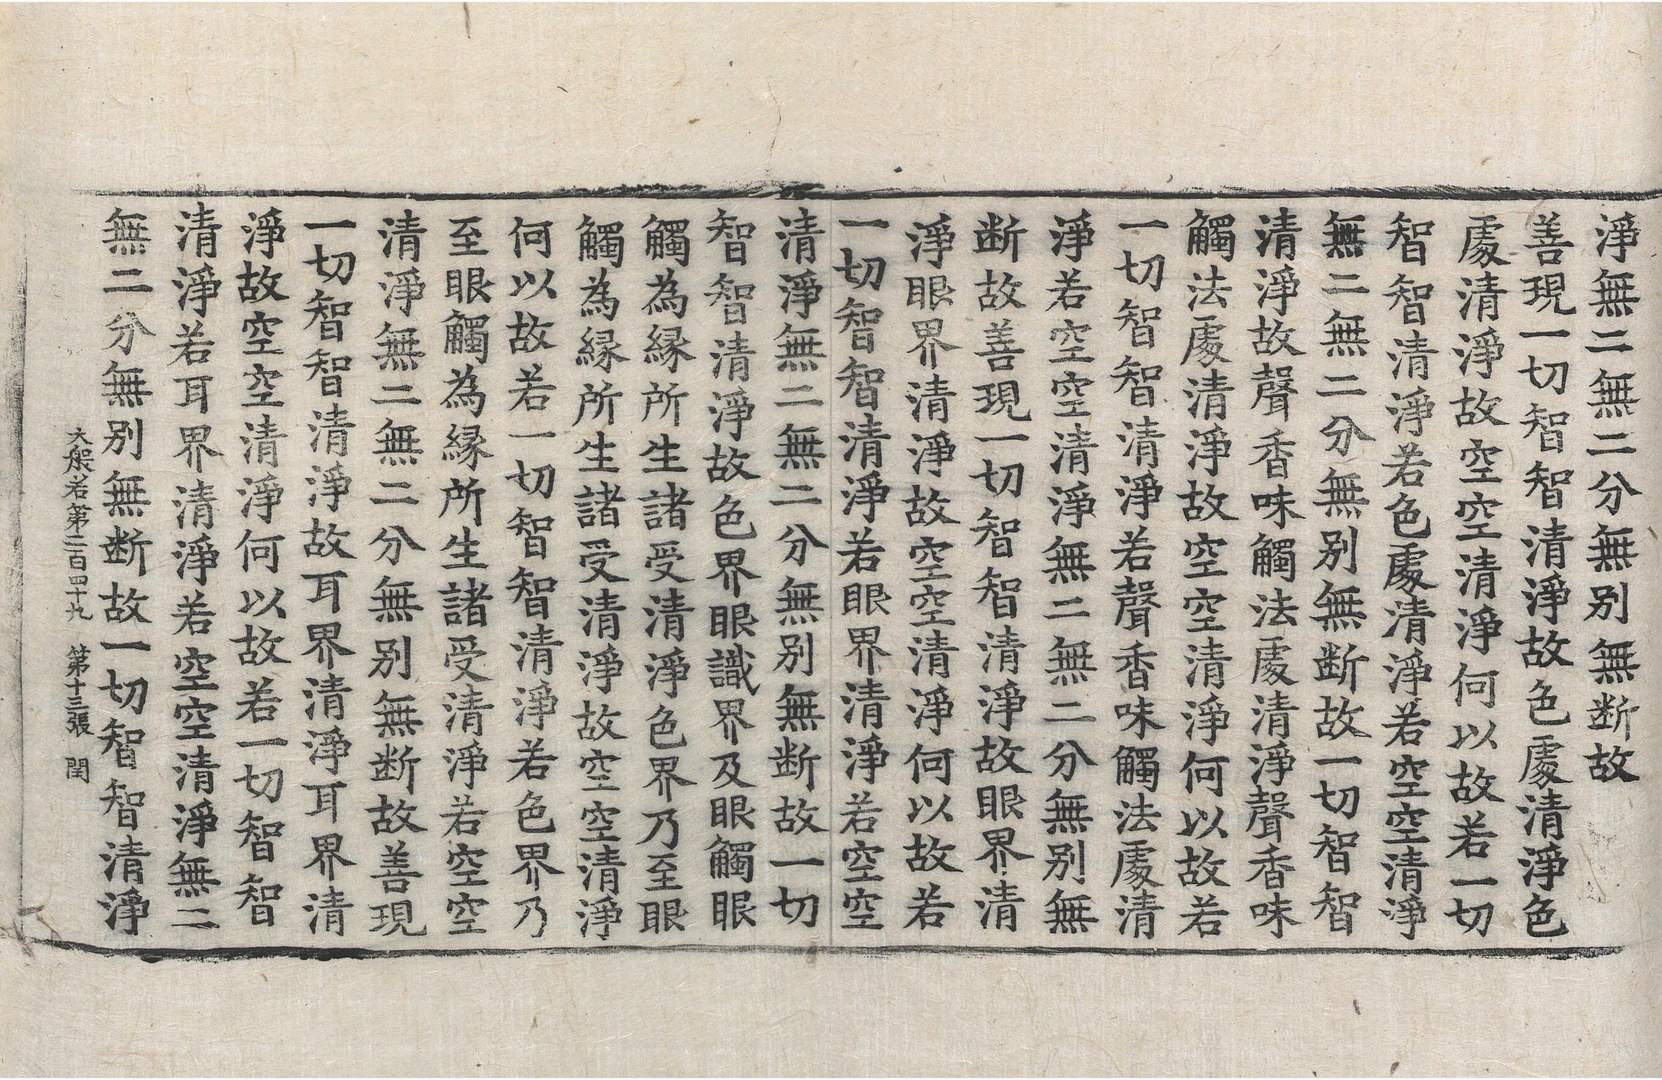 淨無二無二分無別無断故
善現一切智智清淨故色處清淨色
處清淨故空空清淨何以故若一切
智智清淨若色處清淨若空空清淨
無二無二分無別無断故一切智智
清淨故聲香味觸法處清淨聲香味
觸法處清淨故空空清淨何以故若
一切智智清淨若聲香味觸法處清
淨若空空清淨無二無二分無別無
断故善現一切智智清淨故眼界清
淨眼界清淨故空空清淨何以故若
一切智智清淨若眼界清淨若空空
清淨無二無二分無別無断故一切
智智清淨故色界眼識界及眼觸眼
觸為縁所生諸受清淨色界乃至眼
觸為縁所生諸受清淨故空空清淨
何以故若一切智智清淨若色界乃
至眼觸為縁所生諸受清淨若空空
清淨無二無二分無別無断故善現
一切智智清淨故耳界清淨耳界清
淨故空空清淨何以故若一切智智
清淨若耳界清淨若空空清淨無二
無二分無別無断故一切智智清淨
大般若第二百四十九 第十三張 閏